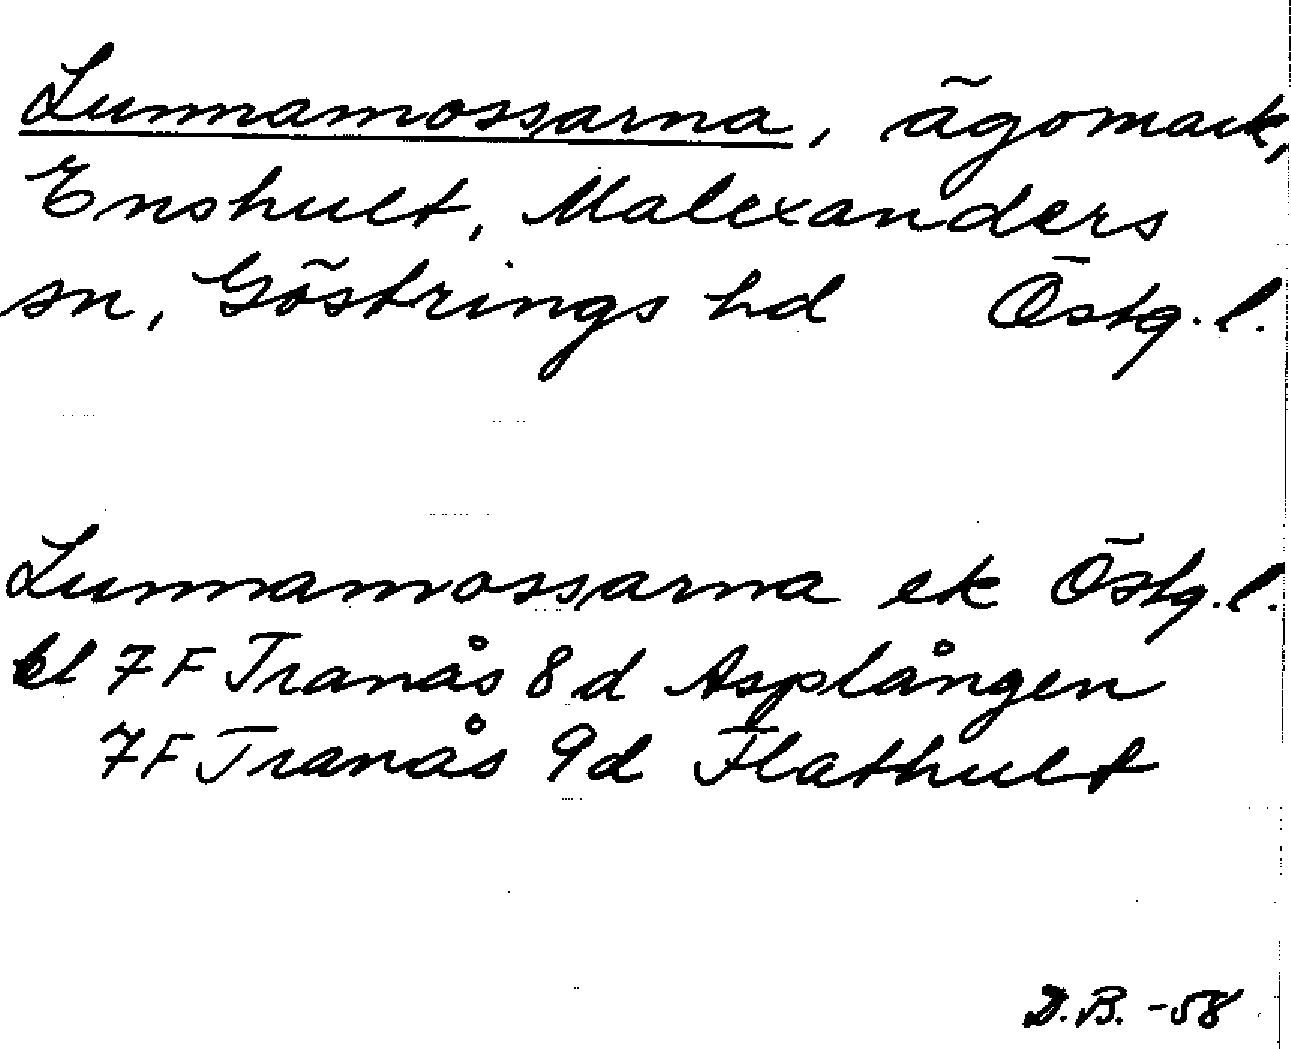 Lunnamossarna, ägomark,
Enshult, Malexanders
sn, Göstrings hd Östg.l.
Lunnamossarna ek Östg.l.
bl 7F Tranås 8d Asplången
7F Tranås 9d Flathult
D.B. -58